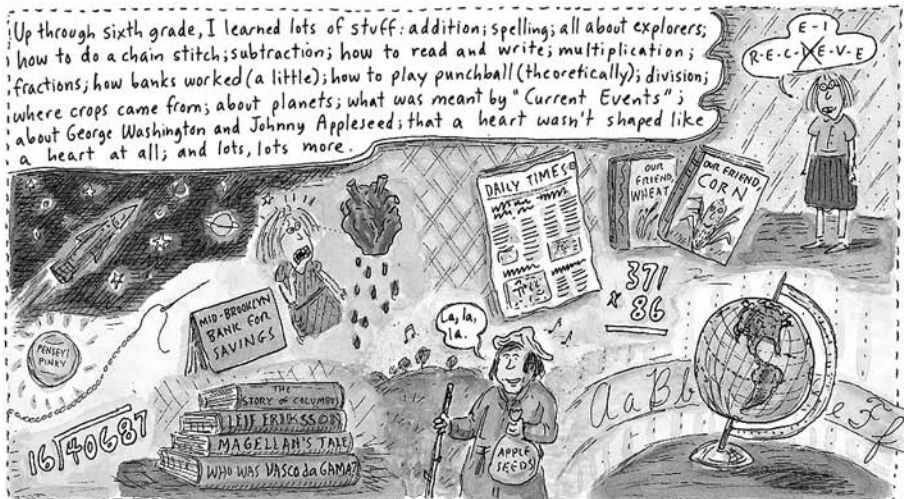 Up through sixth grade, I learned lots of stuff: addition; spelling; all about explorers;
how to do a chain stitch; subtraction; how to read and write; multiplication;
fractions; how banks worked (a little); how to play punchball (theoretically); division;
where crops came from; about planets; what was meant by "Current Events";
about George Washington and Johnny Appleseed; that a heart wasn't shaped like
a heart at all; and lots, lots more.
E-I
R-E-C-X-E-V-E
DAILY TIMES
OUR
FRIEND,
WHEAT
OUR FRIEND,
CORN
371
x 86
MID-BROOKLYN
BANK FOR
SAVINGS
PENSEY
PINKY
La, la,
la.
THE
STORY OF COLUMBUS
LEIF ERIKSSON
MAGELLAN'S TALE
WHO WAS VASCO da GAMA?
16)40687
APPLE
SEEDS
Aa Bb
e Ff